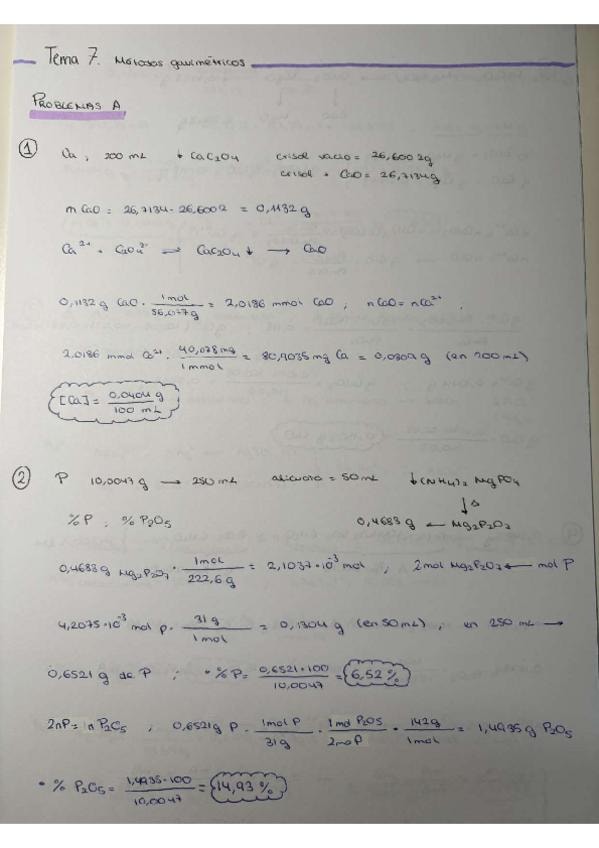 Tema 7. Métodos gravimétricos
PROBLEMAS A
① Ca, 200 mL ↓ CaC2O4 crisol vacio = 26,6002g
crisol + CaO = 26,7134g
m CaO = 26,7134 - 26,6002 = 0,1132 g
Ca²⁺ + C2O4²⁻ ⇌ CaC2O4 ↓ → CaO
0,1132 g CaO · 1mol / 56,077g = 2,0186 mmol CaO ; nCaO = nCa²⁺.
2,0186 mmol Ca²⁺ · 40,078 mg / 1 mmol = 80,9035 mg Ca = 0,0809 g (en 200 mL)
[Ca] = 0,0404 g / 100 mL
② P 10,0047 g → 250 mL alicuota = 50 mL ↓(NH4)2 MgPO4
↓ Δ
% P ; % P2O5 0,4683 g ← Mg2P2O7
0,4683 g Mg2P2O7 · 1mol / 222,6 g = 2,1037·10⁻³ mol ; 2mol Mg2P2O7 ← mol P
4,2075·10⁻³ mol P · 31 g / 1 mol = 0,1304 g (en 50 mL) ; en 250 mL →
0,6521 g de P ; • % P = 0,6521·100 / 10,0047 = 6,52 %
2nP = n P2O5 ; 0,6521 g P · 1mol P / 31 g · 1 mol P2O5 / 2mol P · 142g / 1mol = 1,4935 g P2O5
• % P2O5 = 1,4935·100 / 10,0047 = 14,93 %